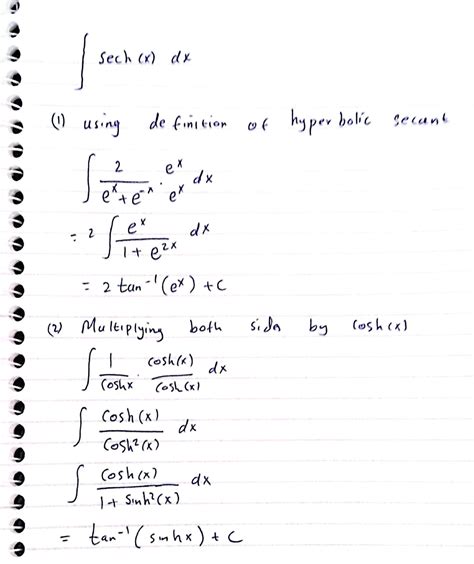 ∫ sech(x) dx
(1) using definition of hyperbolic secant
∫ 2/(e^x + e^-x) · e^x/e^x dx
= 2 ∫ e^x/(1 + e^2x) dx
= 2 tan^-1(e^x) + C
(2) Multiplying both side by cosh(x)
∫ 1/coshx · cosh(x)/cosh(x) dx
∫ cosh(x)/cosh²(x) dx
∫ cosh(x)/(1 + sinh²(x)) dx
= tan^-1(sinhx) + C